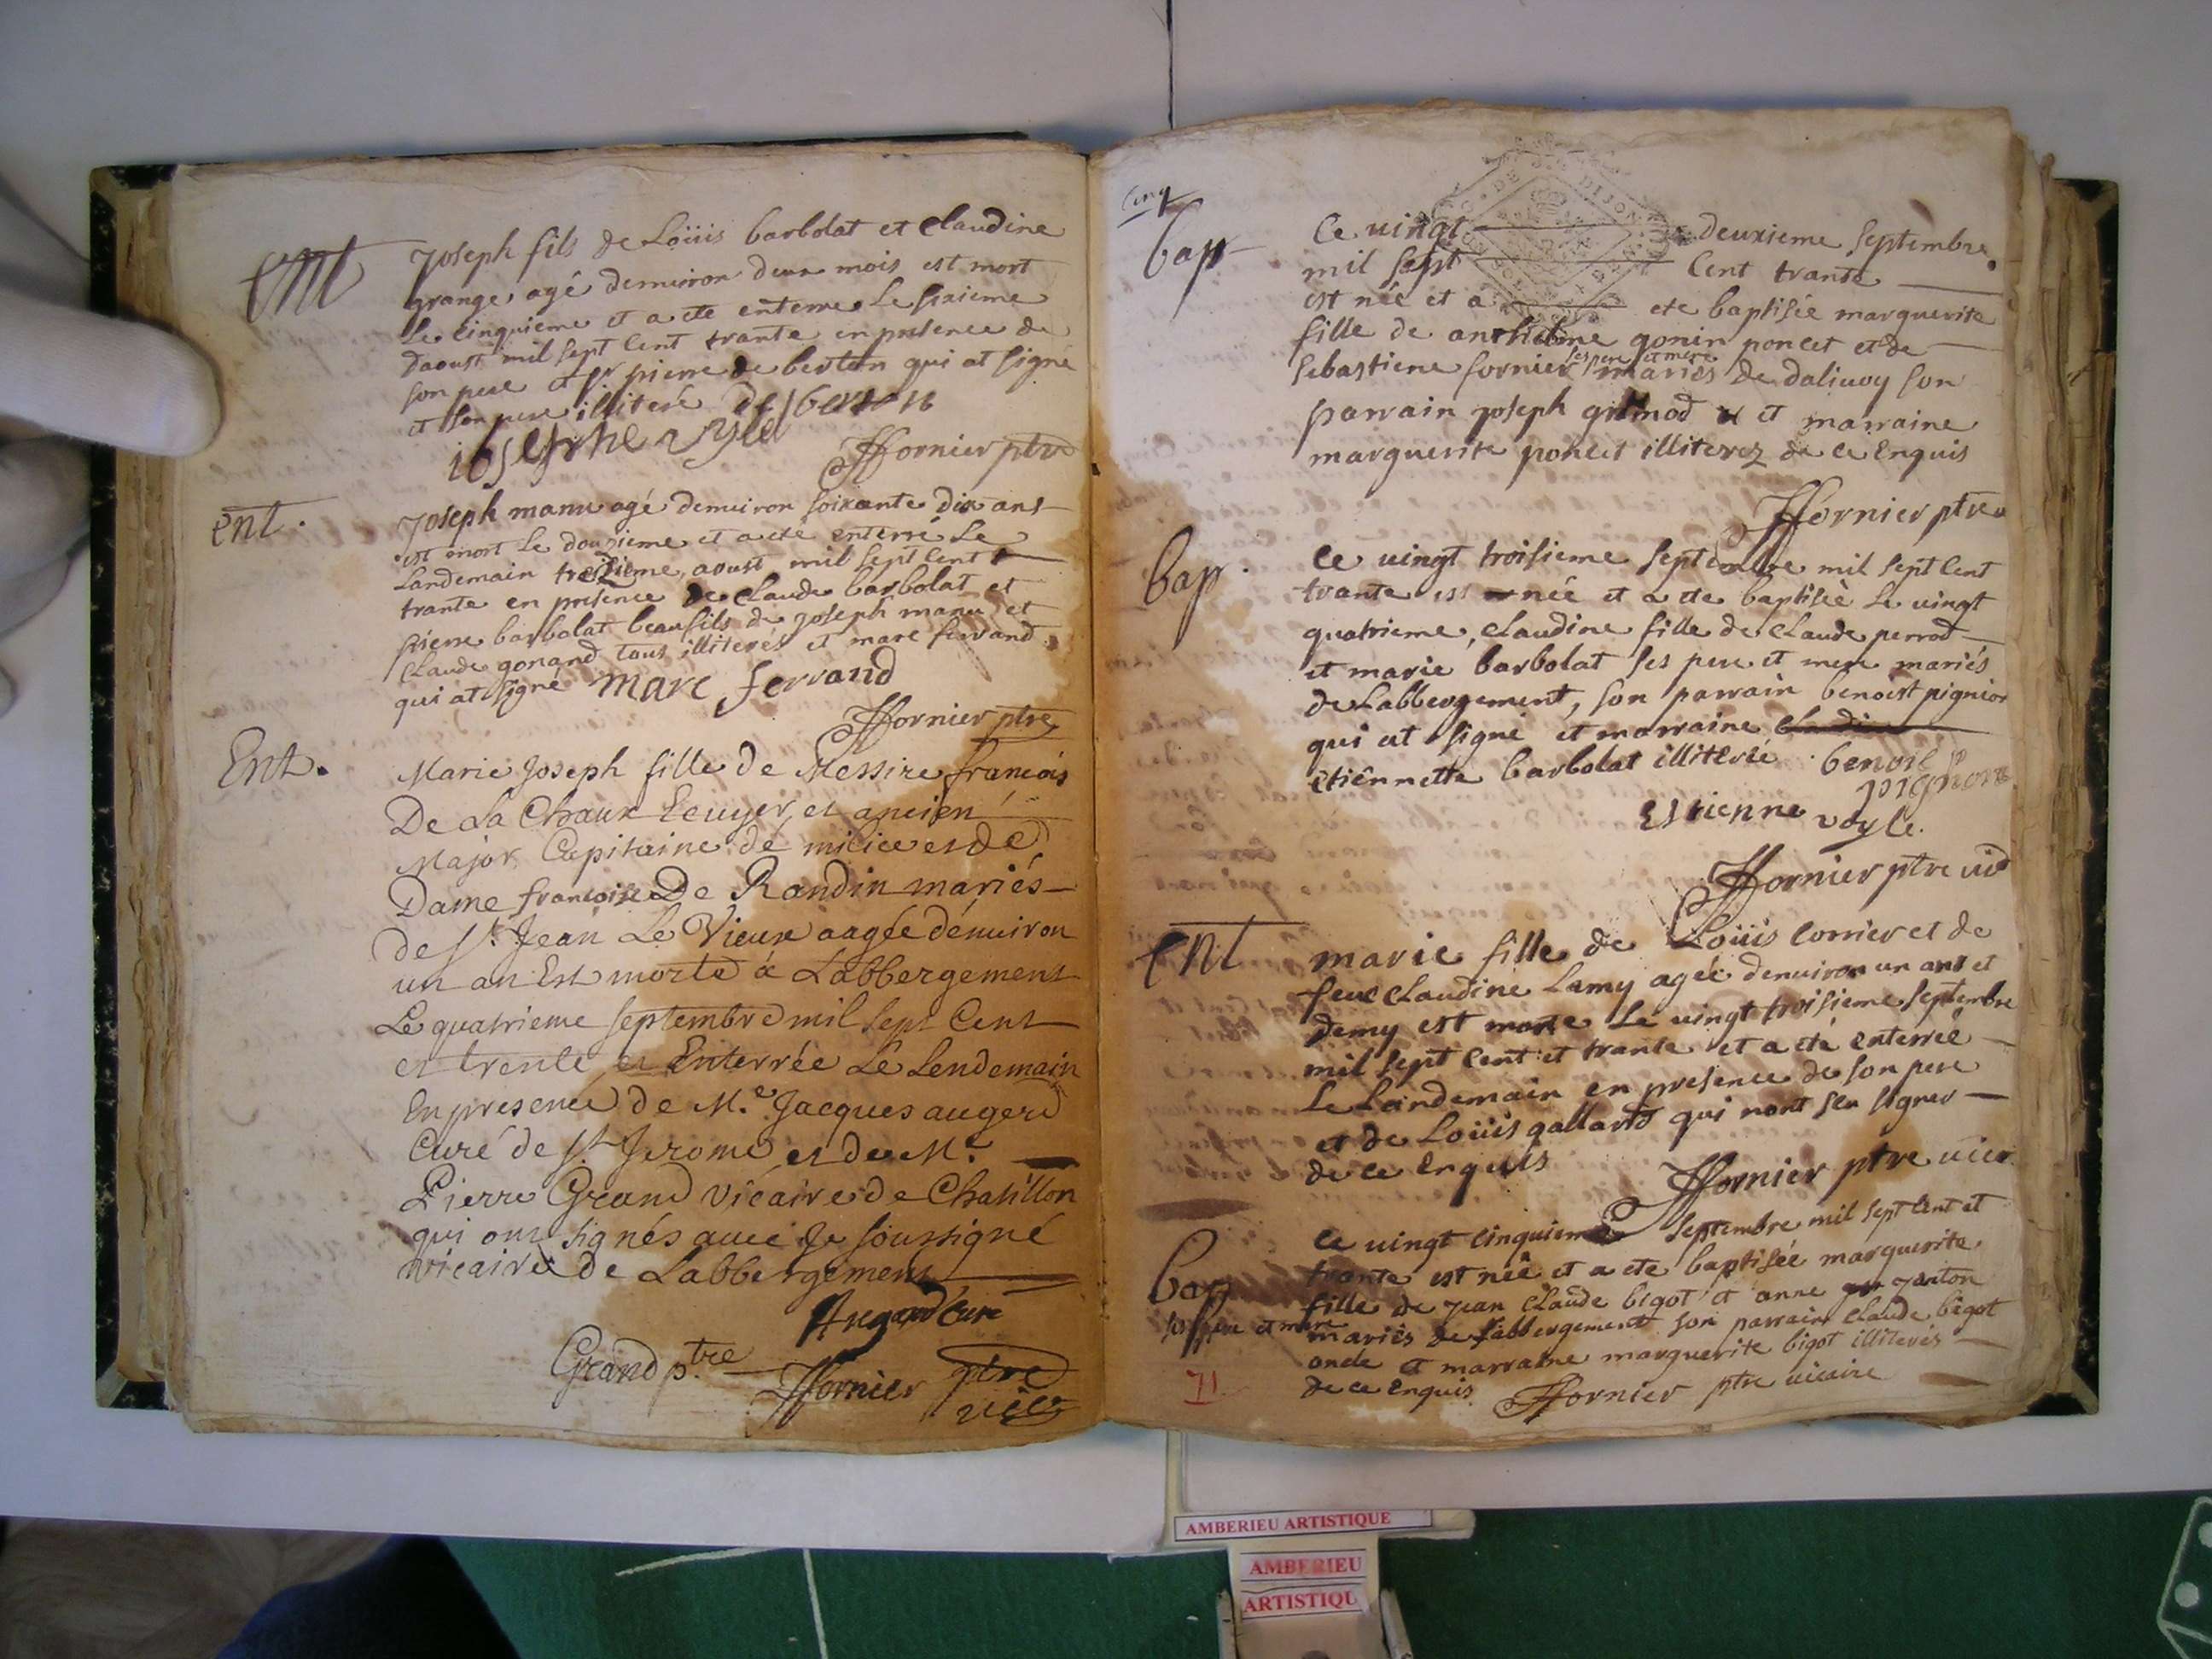 Ent
Joseph fils de Loüis barbolat et Claudine
grange agé denuiron deux mois est mort
le cinquieme et a ete enterre le sixieme
daoust mil sept cent trante en presence de
son pere et Sr pierre de berlon qui at signé
et son pere illiteré de
Hornier ptre
ent.
Joseph manu agé denuiron soixante dix ans
est mort le douzieme et a eté enterré le
landemain treizieme, aoust mil sept cent
trante en presence de Claude barbolat et
pierre barbolat beaufils de joseph manu et
Claude gonand tous illiterés et marc ferrand
qui at signé marc ferrand
Hornier ptre
Ent.
Marie Joseph fille de Messire francois
De La Chaux Ecuyer, et ancien
Major Capitaine de milice et de
Dame francoise De Randin mariés
de St. Jean Le Vieux aagée dénuiron
un an Est morte à Labbergement
Le quatrieme septembre mil sept Cent
et trente et Enterrée Le Lendemain
En presence de M.e Jacques augerd
Curé de St. Jerome et de M.e
Pierre Grand vicaire de Chatillon
qui ont signés auec je soussigné
vicaire de Labbergement
Augerd Curé
Grand p.tre Hornier ptre
vicr
Cinq
bap
Ce uingt deuxieme septembre
mil sept Cent trante
est née et a ete baptisée marguerite
fille de anthelme gonin poncet et de
ses pere et mere
Sebastiene fornier mariés de daliuoy son
parrain joseph et marraine
marguerite poncet illiterez de ce Enquis
Hornier ptre
bap.
Ce uingt troisieme septembre mil sept Cent
trante est née et a ete baptisée le uingt
quatrieme, Claudine fille de Claude perrod
et marie barbolat ses pere et mere mariés
de Labbergement, son parrain benoist pignion
qui at signé et marraine Claudine
etiennette barbolat illiterée benoit
pignon
Estienne voyle.
Hornier ptre vic
ent
marie fille de Loüis Corrier et de
feue Claudine Lamy agée denuiron un ans et
demy est morte le uingt troisieme septembre
mil sept Cent et trante et a eté enterreé
Le Landemain en presence de son pere
et de Loüis galland qui nont seu signer
de ce Enquis
Hornier ptre uicr
bap
Ce uingt Cinquieme septembre mil sept Cent et
trante est née et a ete baptisée marguerite
fille de jean Claude bigot et anne janton
ses pere et mere
mariés de Labbergement son parrain Claude bigot
oncle et marraine marguerite bigot illiterés
de ce Enquis. Hornier ptre uicaire
AMBERIEU ARTISTIQUE
AMBERIEU
ARTISTIQU